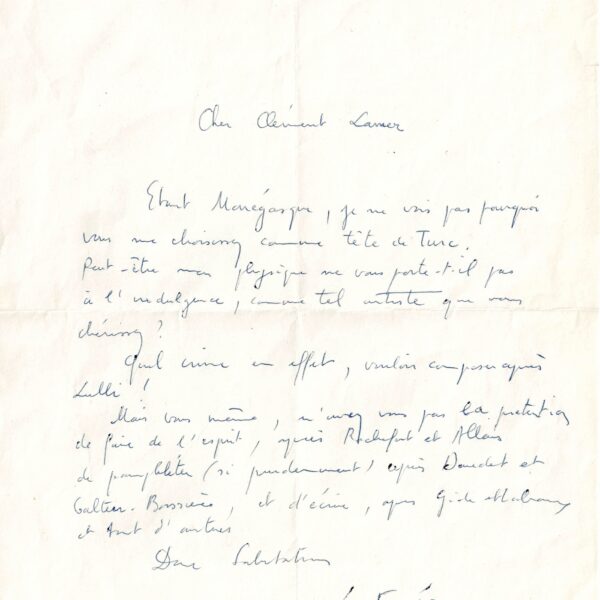 Cher Clément
Etant Monégasque, je ne vois pas pourquoi
vous me choisissez comme tête de Turc.
Peut-être mon physique ne vous porte-t-il pas
à l'indulgence, comme tel artiste que vous
chérissez?
Quel crime en effet, vouloir composer après
Lulli!
Mais vous même, n'avez vous pas la prétention
de faire de l'esprit, après Rochefort et Allais
de pamphléter (si prudemment) après Daudet et
Galtier-Boissière, et d'écrire, après Gide
et tant d'autres
Donc Salutations